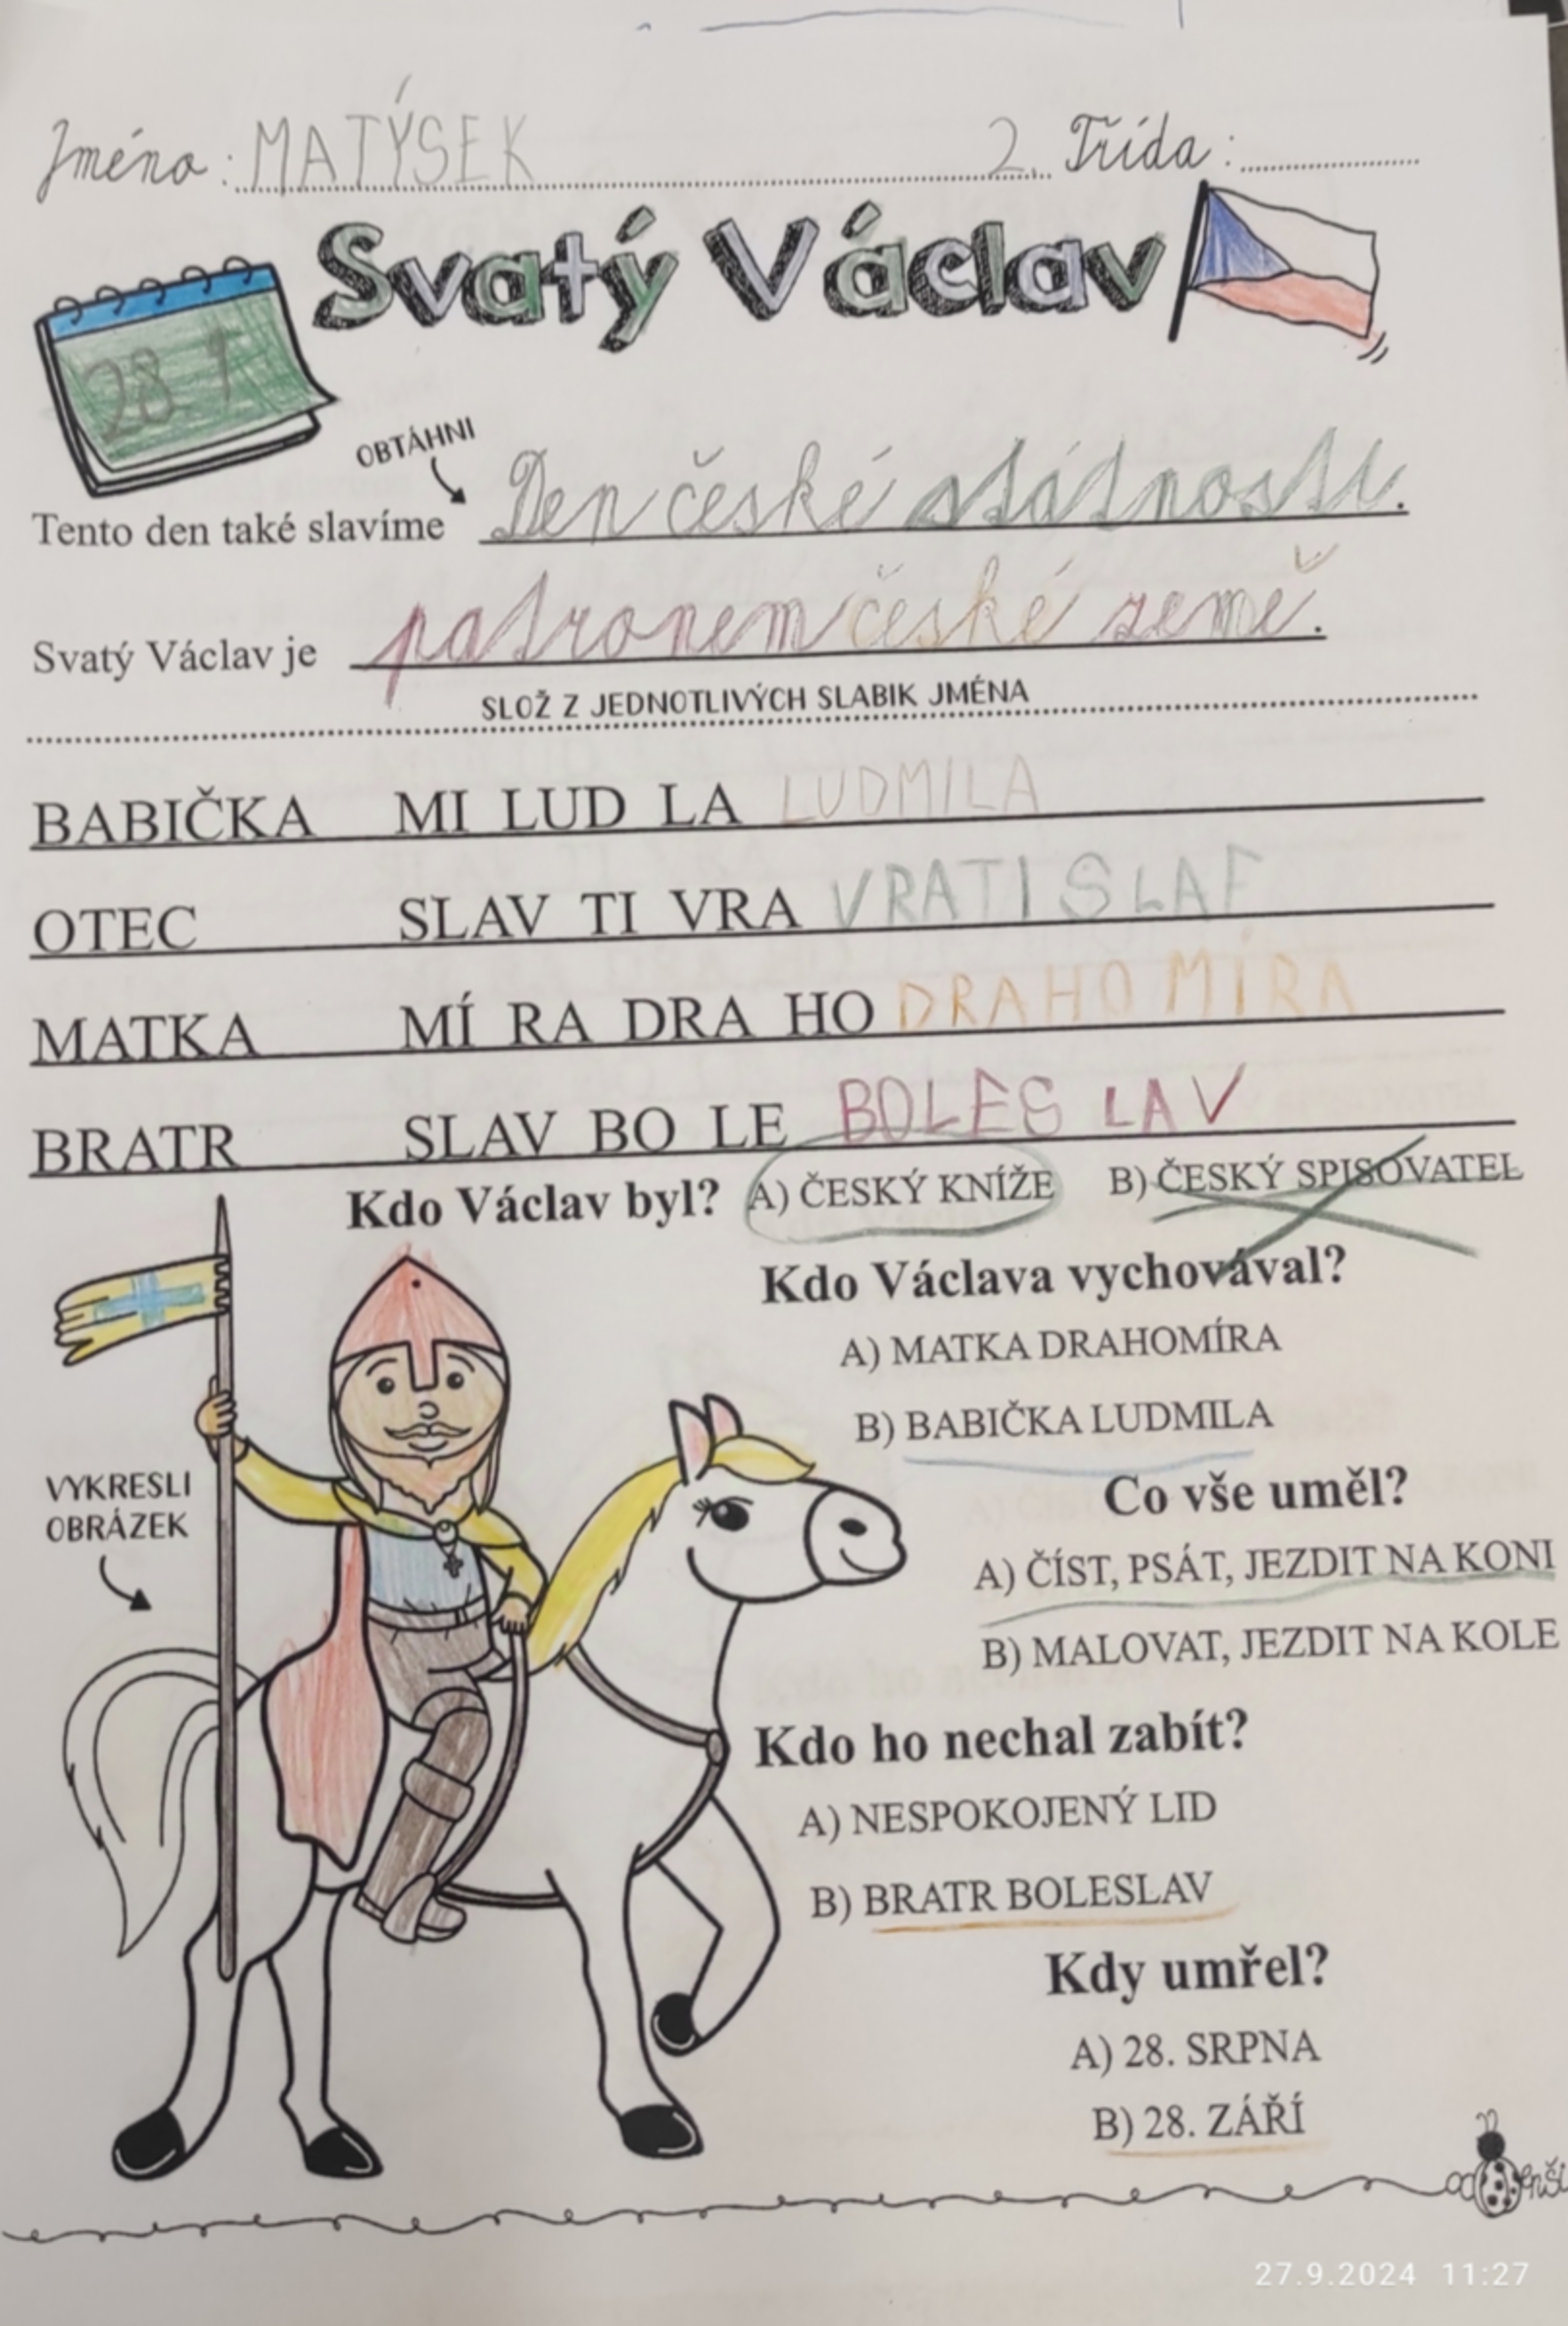 Jméno: MATÝSEK 2. Třída:
Svatý Václav
28 9
OBTÁHNI
Tento den také slavíme Den české státnosti.
Svatý Václav je patronem české země.
SLOŽ Z JEDNOTLIVÝCH SLABIK JMÉNA
BABIČKA MI LUD LA LUDMILA
OTEC SLAV TI VRA VRATISLAF
MATKA MÍ RA DRA HO DRAHOMÍRA
BRATR SLAV BO LE BOLESLAV
Kdo Václav byl? A) ČESKÝ KNÍŽE B) ČESKÝ SPISOVATEL
Kdo Václava vychovával?
A) MATKA DRAHOMÍRA
B) BABIČKA LUDMILA
VYKRESLI
OBRÁZEK
Co vše uměl?
A) ČÍST, PSÁT, JEZDIT NA KONI
B) MALOVAT, JEZDIT NA KOLE
Kdo ho nechal zabít?
A) NESPOKOJENÝ LID
B) BRATR BOLESLAV
Kdy umřel?
A) 28. SRPNA
B) 28. ZÁŘÍ
27.9.2024 11:27